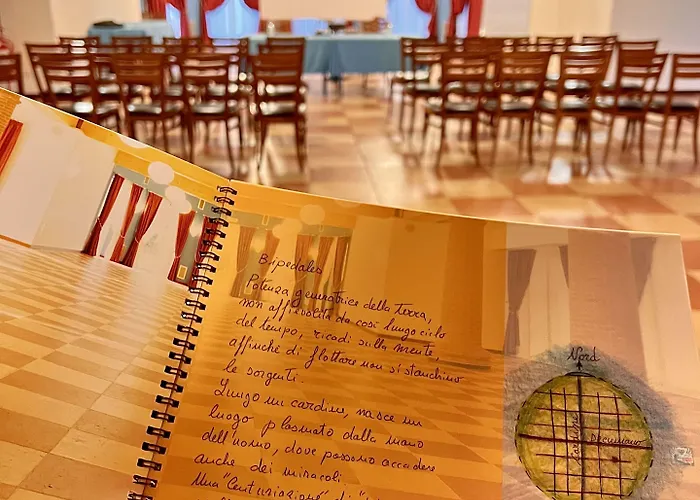 Bipedales
Potenza generatrice della Terra,
non affievolita da così lungo ciclo
del tempo, ricadi sulla mente,
affinché di flottare non si stanchino
le sorgenti.
Lungo un cardine, nasce un
luogo plasmato dalla mano
dell'uomo, dove possono accadere
anche dei miracoli.
Una "Centuriazione" di
Nord
Cardine
Decumano